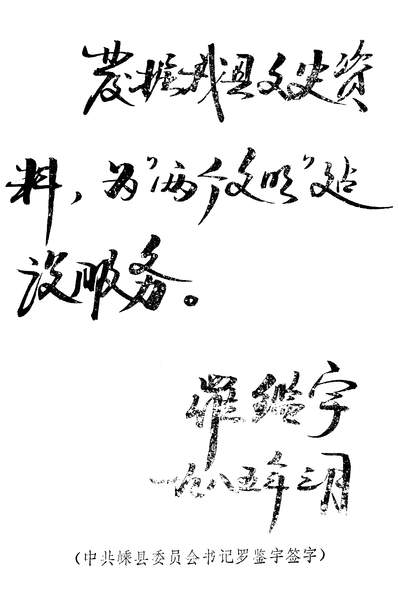 發掘我县文史资
料，为“两个文明”建
设服务。
羅鑑宇
一九八五年三月
（中共嵊县委员会书记罗鉴宇签字）